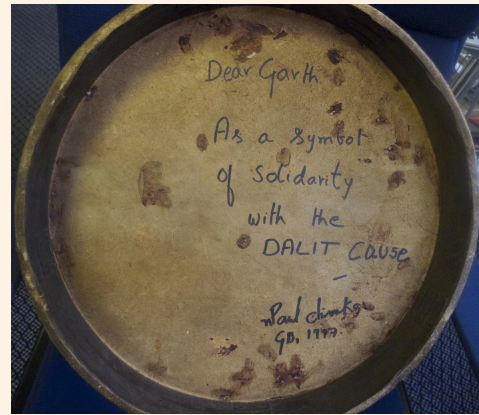 Dear Garth
As a symbol
of Solidarity
with the
DALIT CAUSE
Paul
GB, 1997.